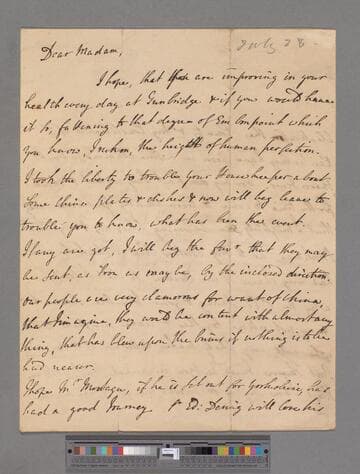 July 28
Dear Madam,
I hope, that you are improving in your
health every day at Tunbridge & if you would have
it so, fattening to that degree of Embonpoint which
you know, I reckon, the height of human perfection.
I took the liberty to trouble your Housekeeper about
some China plates & dishes & now will beg leave to
trouble you to know, what has been the event.
If any are got, I will beg the favr that they may
be sent, as soon as may be, by the inclosed direction.
our people are very clamorous for want of China,
that I imagine, they would be content with almost any
thing, that has blue upon the brims if nothing is to be
had nearer.
I hope Mr Montagu, if he is set out for Yorkshire, has
had a good Journey. Sr Ed: Dering will lose his